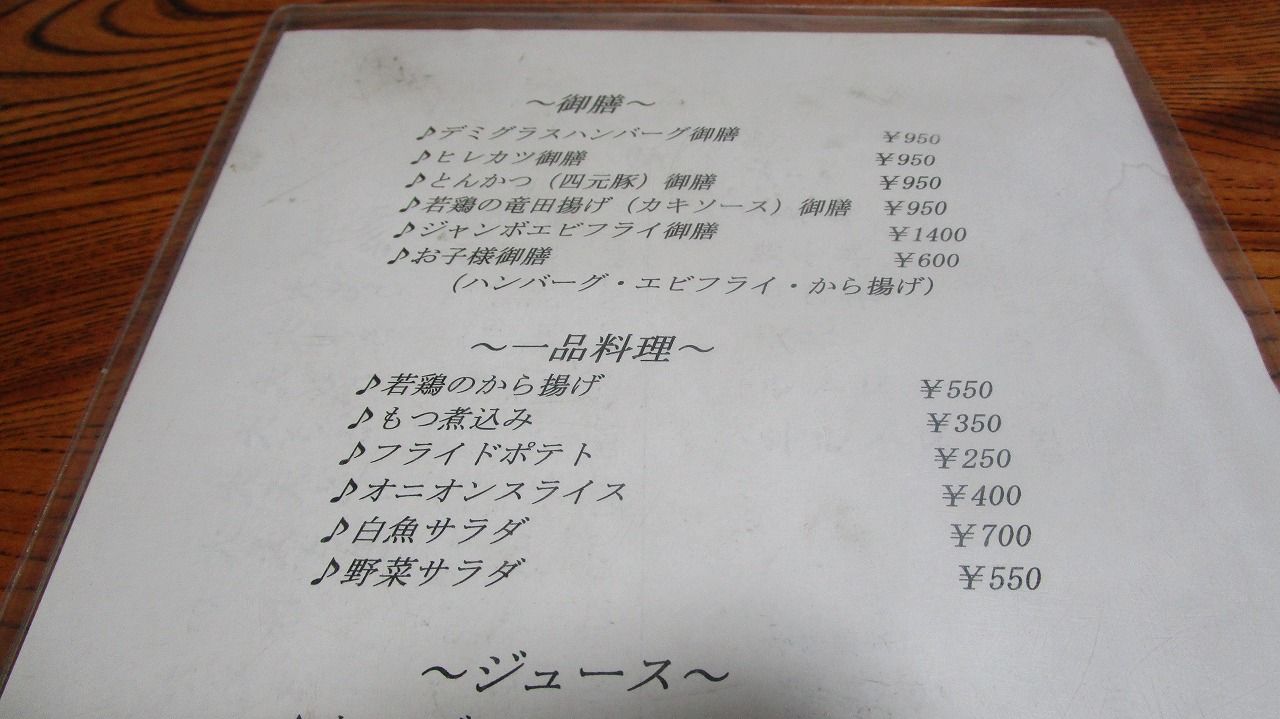 ～御膳～
♪デミグラスハンバーグ御膳 ￥950
♪ヒレカツ御膳 ￥950
♪とんかつ（四元豚）御膳 ￥950
♪若鶏の竜田揚げ（カキソース）御膳 ￥950
♪ジャンボエビフライ御膳 ￥1400
♪お子様御膳 ￥600
（ハンバーグ・エビフライ・から揚げ）
～一品料理～
♪若鶏のから揚げ ￥550
♪もつ煮込み ￥350
♪フライドポテト ￥250
♪オニオンスライス ￥400
♪白魚サラダ ￥700
♪野菜サラダ ￥550
～ジュース～